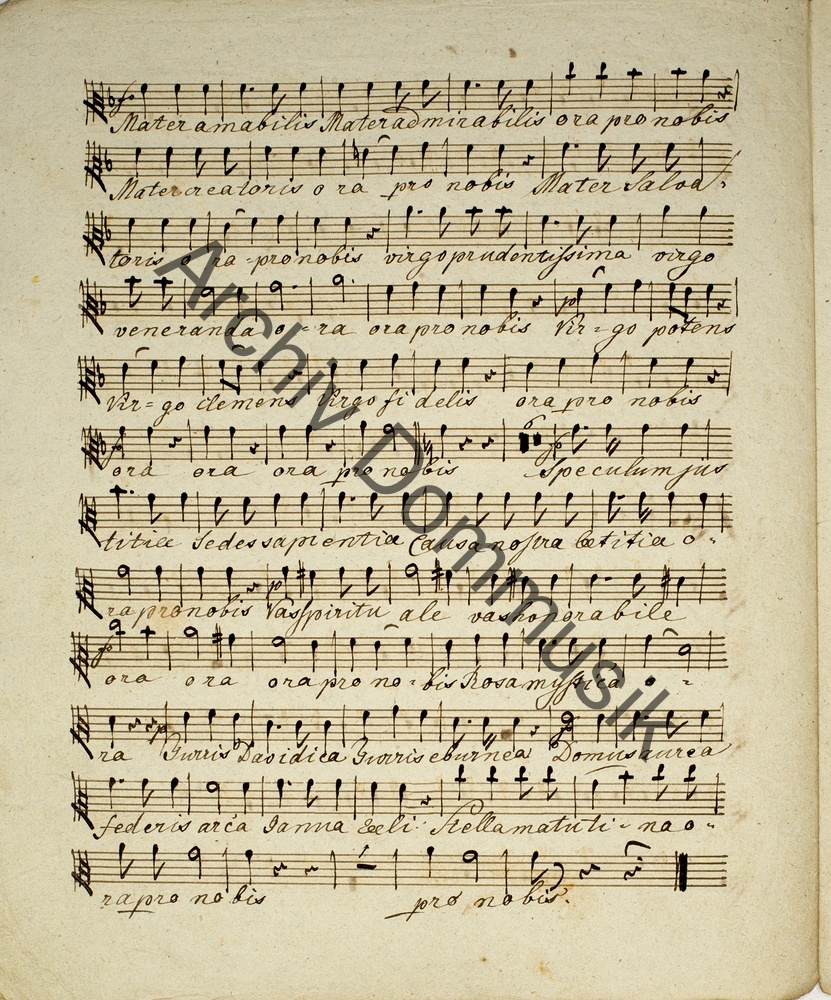 Mater amabilis Mater admirabilis ora pro nobis
Mater creatoris o ra pro nobis Mater Salva-
toris o ra-pro nobis virgo prudentissima virgo
veneranda o-ra ora pro nobis Vir=go potens
Vir=go clemens Virgo fi delis ora pro nobis
6
ora ora ora pro nobis Speculum jus
titiæ Sedes sapientiæ Causa nostra lætitiæ o-
ra pro nobis Vas spiritu ale vas honorabile
ora ora ora pro no-bis Rosa mystica o-
ra Turris Davidica Turris eburnea Domus aurea
federis arca Janua Cæli Stella matuti-na o-
ra pro nobis pro nobis.
Archiv Dommusik